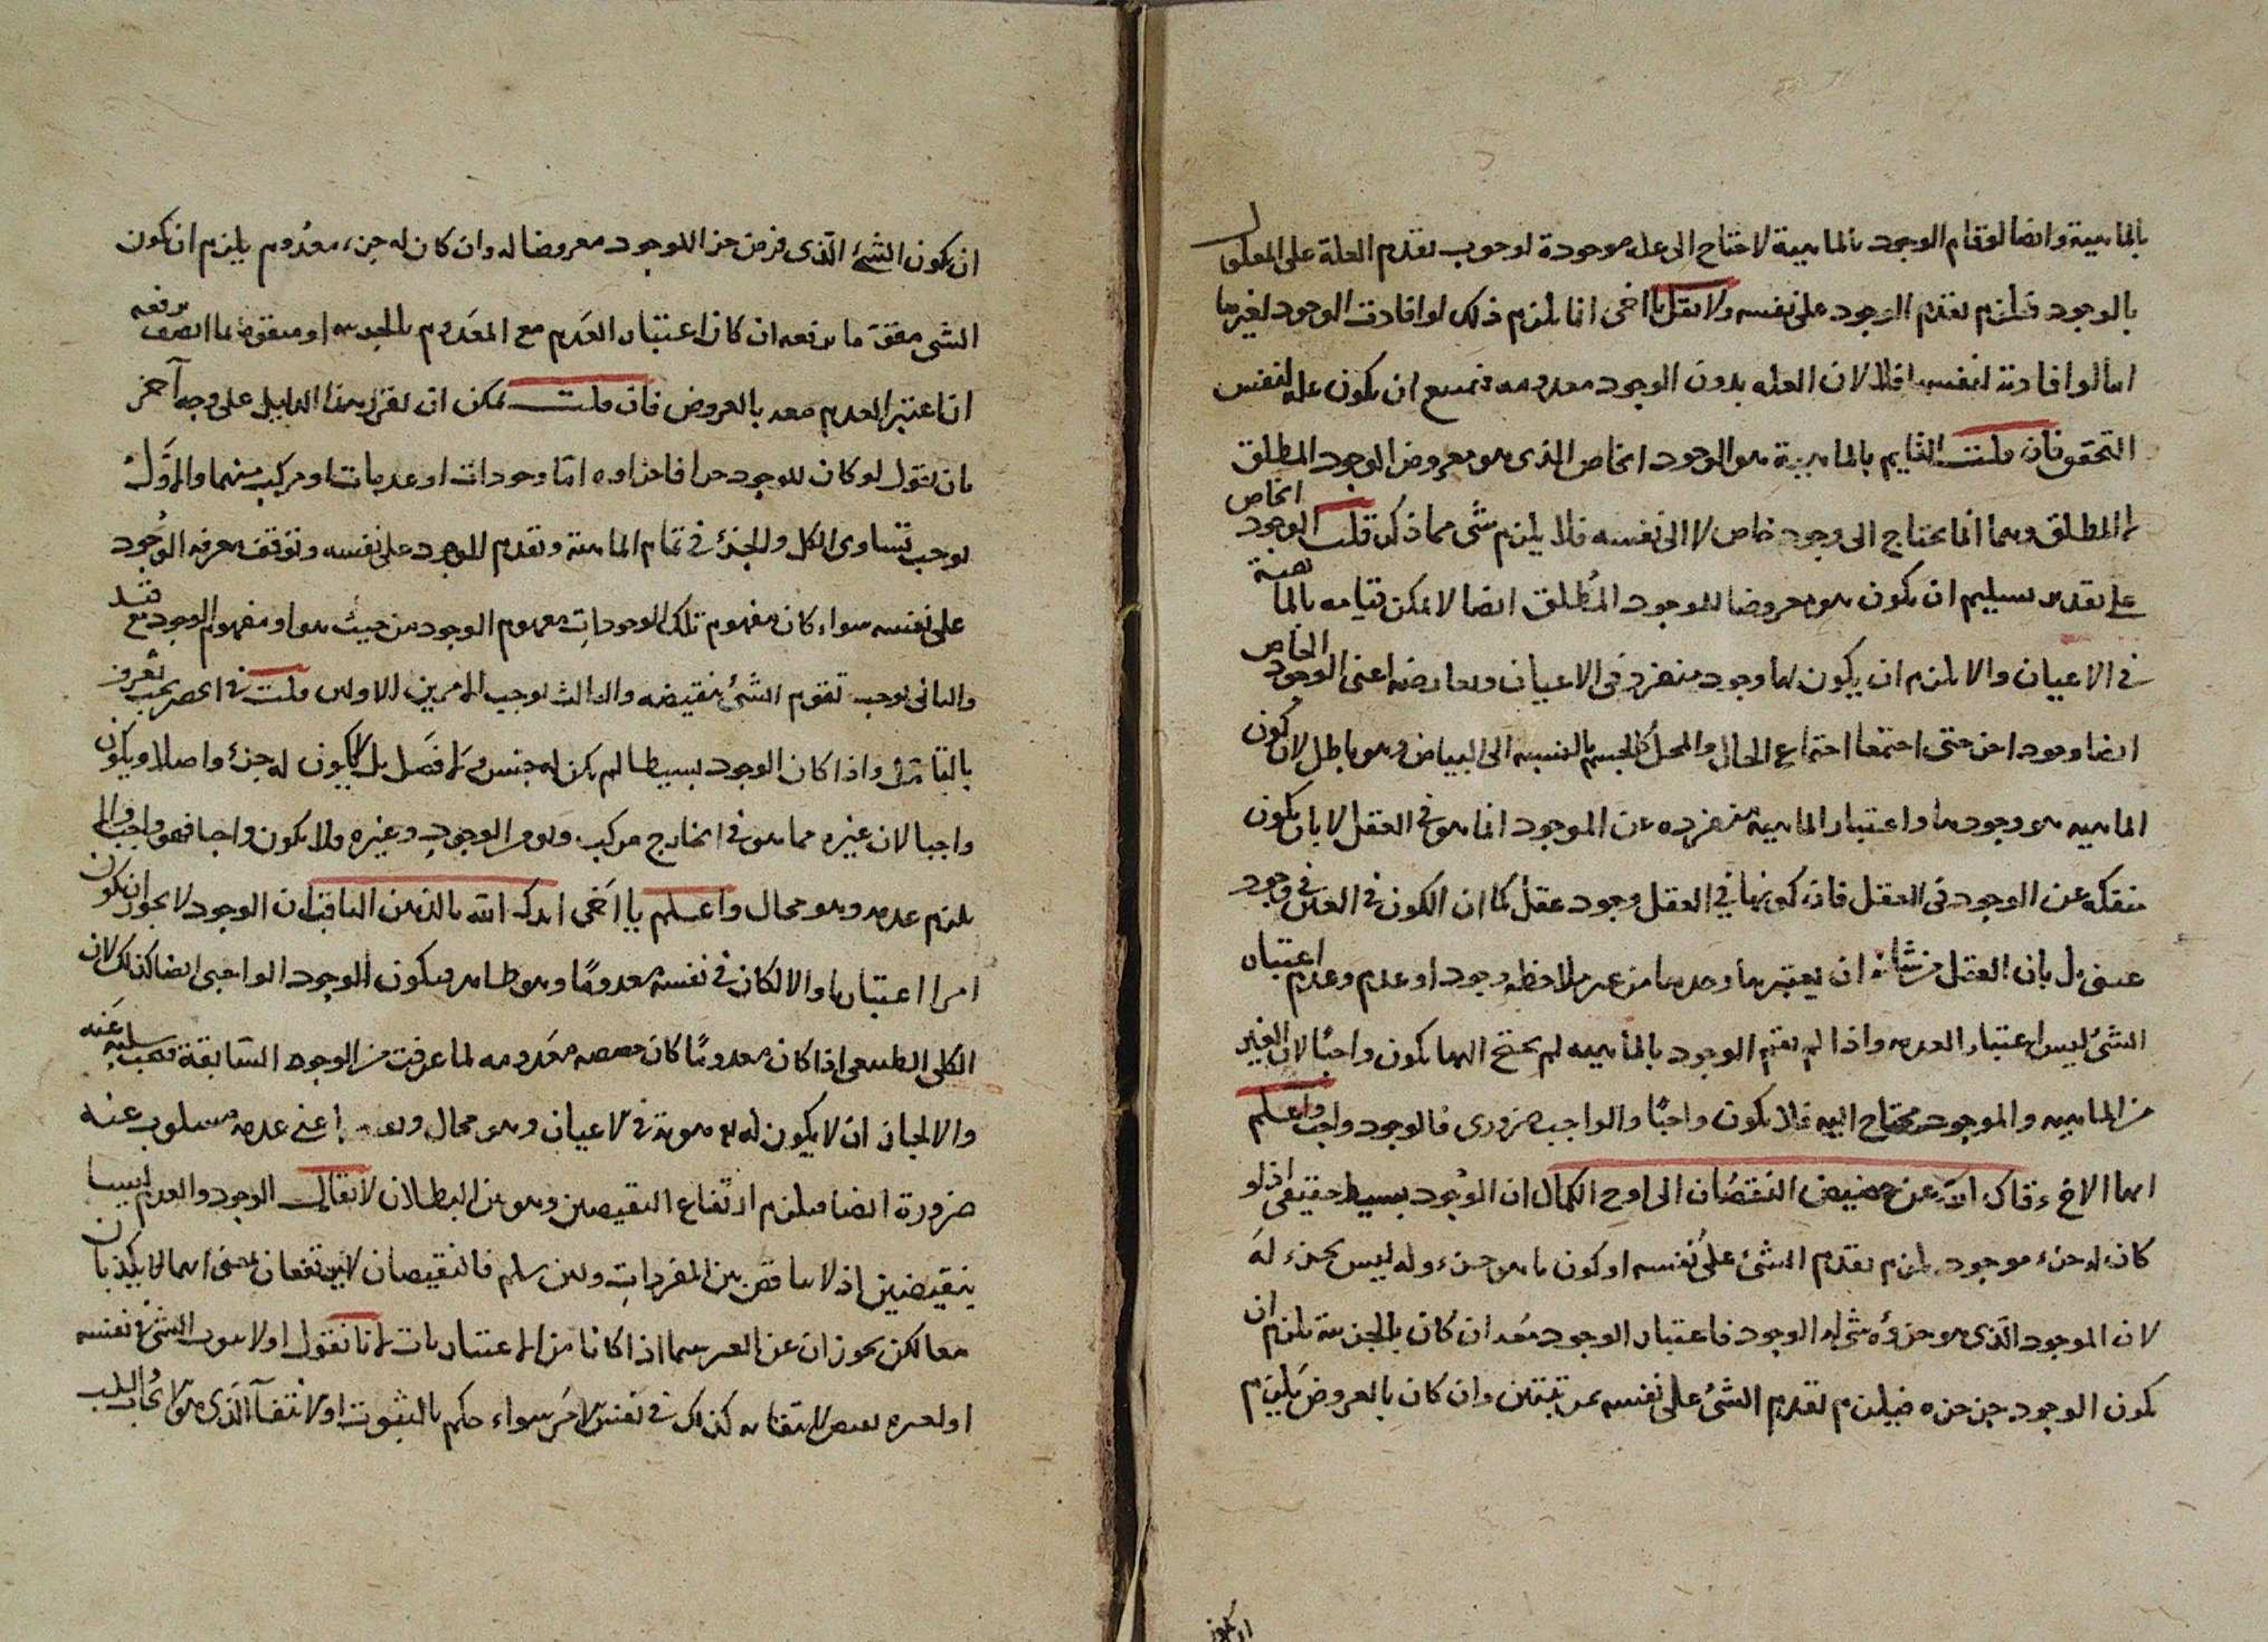 بالماهية وايضا لو قام الوجود بالماهية لاحتاج الى علة موجودة لوجوب تقدم العلة على المعلول
بالوجود فيلزم تقدم الوجود على نفسه ولا تقل يا اخى انما يلزم ذلك لو افادت الوجود لغيرها
اما لو افادته لنفسها فلا لان العلة بدون الوجود معدومة فيمتنع ان يكون علة لنفس
التحقق فان قلت القايم بالماهية هو الوجود الخاص الذى هو معروض الوجود المطلق
لا المطلق وهما انما يحتاج الى وجود خاص لا الى نفسه فلا يلزم شى مما ذكر قلت الوجود الخاص
على تقدير تسليم ان يكون هو معروضا للوجود المطلق ايضا لا يمكن قيامه بالماهية
فى الاعيان والا لزم ان يكون لها وجود منفرد فى الاعيان ولعارضه اعنى الوجود الخاص
ايضا وجود اخر حتى اجتمعا اجتماع الحال والمحل كالجسم بالنسبه الى البياض وهو باطل لان كون
الماهيه هو وجودها واعتبار الماهية منفرده عن الموجود انما هو فى العقل لا بان يكون
منفكة عن الوجود فى العقل فان كونها فى العقل وجود عقلى كما ان الكون فى العين وجود
عينى بل بان العقل من شانه ان يعتبرها وحدها من غير ملاحظة وجود او عدم وعدم اعتبار
الشئ ليس اعتبار العدم واذا لم يقم الوجود بالماهيه لم يحتج اليها يكون واجبًا لان الغير
من الماهيه والموجود محتاج اليه فلا يكون واجبًا والواجب ضرورى فالوجود واجب واعلم
ايها الاخ رقاك الله عن حضيض النقصان الى اوج الكمال ان الوجود بسيط حقيقى اذ لو
كان له جزء موجود لزم تقدم الشئ على نفسه او كون ما هو جزء وله ليس بجزء له
لان الموجود الذى هو جزؤه شئ له الوجود فاعتبار الوجود معه ان كان بالجزيية يلزم ان
يكون الوجود جزء جزءه فيلزم تقدم الشئ على نفسه بمرتبتين وان كان بالعروض يلزم
ان يكون
ان يكون الشئ الذى فرض جزء الوجود معروضا له وان كان له جزء معدوم يلزم ان يكون
الشى متقوما برفعه ان كان اعتبار العدم مع المعدوم بالجزييه او متقوما بما اتصف برفعه
ان اعتبر العدم معه بالعروض فان قلت يمكن ان تقرر هذا الدليل على وجه آخر
بان تقول لو كان للوجود جزء فاجزاوه اما وجودات او عدمات او مركب منهما والاول
يوجب تساوى الكل والجزء فى تمام الماهية وتقدم الوجود على نفسه وتوقف معرفه الوجود
على نفسه سواء كان مفهوم تلك الوجودات مفهوم الوجود من حيث هو او مفهوم الوجود مع قيد
والثانى يوجب تقوم الشئ بنقيضه والثالث يوجب الامرين الاولين قلت فى الحصر بحث تعرفه
بالتامل واذا كان الوجود بسيطا لم يكن له جنس ولا فصل بل لا يكون له جزء اصلا ويكون
واجبا لان غيره مما هو فى الخارج مركب وهو من الوجود وغيره ولا يكون واجبا فهو واجب والا
يلزم عدمه وهو محال واعلم يا اخى ايدك الله بالذهن الثاقب ان الوجود لا يجوز ان يكون
امرا اعتباريا والا لكان فى نفسه معدومًا وهو ظاهر فيكون الوجود الواجبى ايضا كذلك لان
الكلى الطبيعى اذا كان معدومًا كان حصصه معدومه لما عرفت من الوجوه السابقة فيجب سلبه عنه
والا لجاز ان لا يكون له هوية فى الاعيان وهو محال اعنى عدمه مسلوب عنه
ضرورة ايضا فيلزم ارتفاع النقيضين وهو بين البطلان لا يقال الوجود والعدم ليسا
بنقيضين اذ لا تناقض بين المفردات ولئن سلم فالنقيضان لا يرتفعان بمعنى انهما لا يكذبان
معا لكن يجوز ان عن العرهما اذا كانا من الاعتباريات لانا نقول اولا ثبوت الشئ فى نفسه
او لغيره نقيض لانتفائه كذلك فى نفس الامر سواء حكم بالثبوت او الانتفاء الذى هو الايجاب والسلب